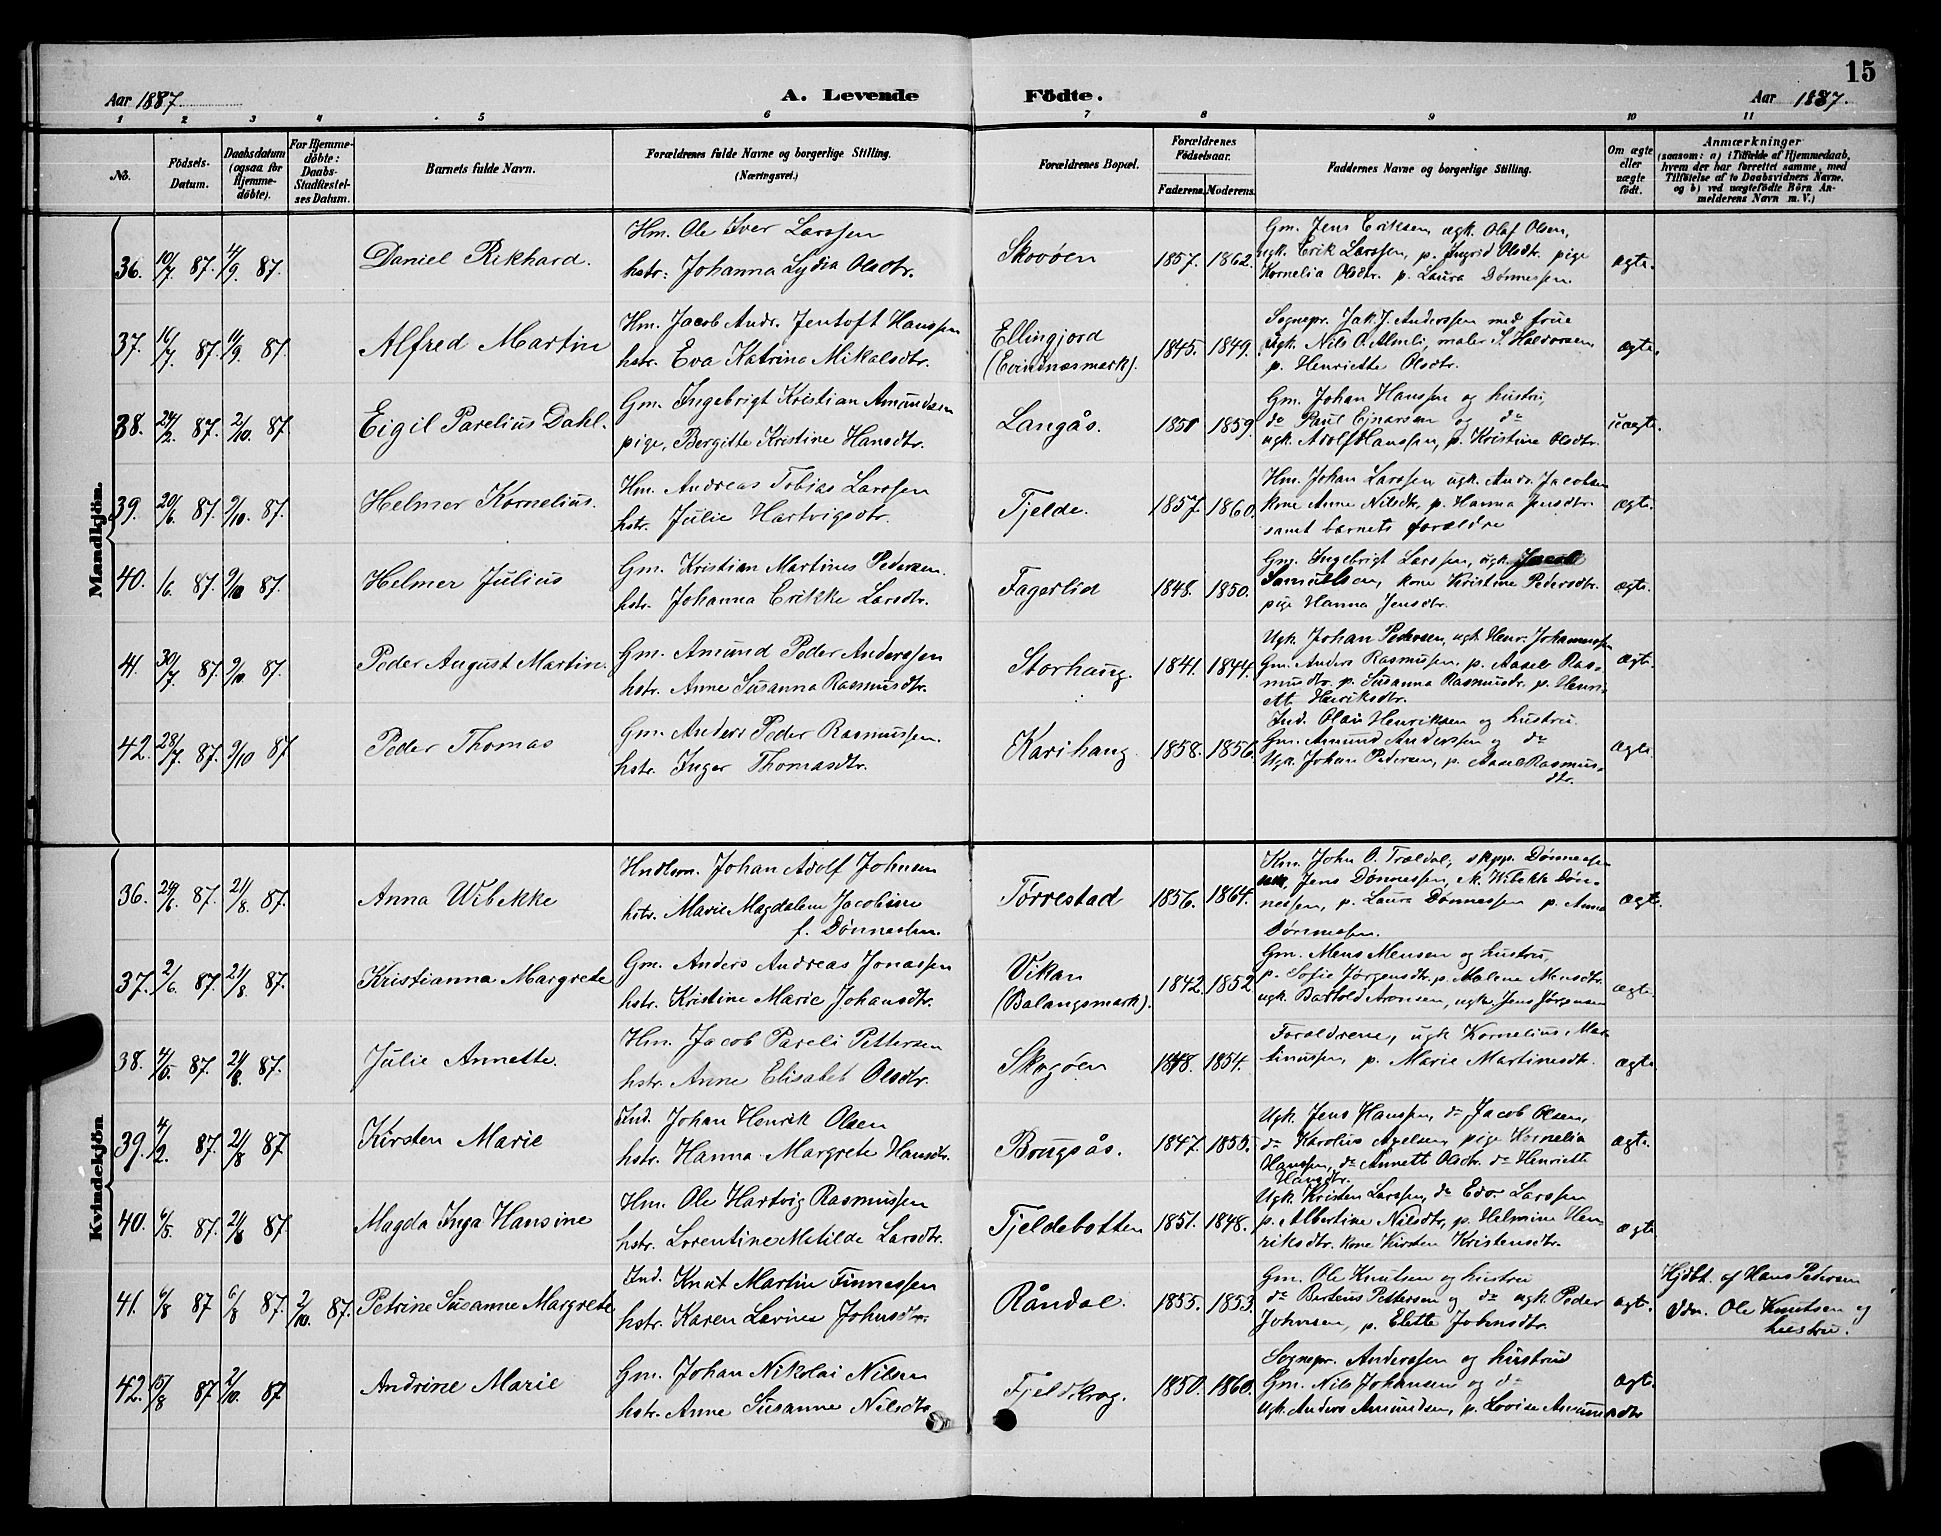 15
Aar 1887. A. Levende Födte. Aar 1887.
1 2 3 4 5 6 7 8 9 10 11
No. Födsels-Datum. Daabsdatum (ogsaa for Hjemmedöbte). For Hjemmedöbte: Daabs-Stadfæstelses Datum. Barnets fulde Navn. Forældrenes fulde Navne og borgerlige Stilling. (Næringsvei.) Forældrenes Bopæl. Forældrenes Födselsaar. Faderens. Moderens. Faddernes Navne og borgerlige Stilling. Om ægte eller uægte födt. Anmærkninger (saasom: a) i Tilfælde af Hjemmedaab, hvem der har forrettet samme, med Tilföielse af to Daabsvidners Navne, og b) ved uægtefödte Börn Anmelderens Navn m. V.)
Mandkjön.
36. 10/7 87. 4/9 87. Daniel Rikhard. Hm. Ole Iver Larssen
hstr. Johanna Lydia Olsdtr. Skovøen 1857. 1862. ægte.
Gm. Jens Eriksen, ugk. Olaf Olsen,
ugk. Erik Larssen, p. Ingrid Olsdtr. pige
Kornelia Olsdtr. p. Laura Dønnessen.
37. 16/7 87. 11/9 87. Alfred Martin Hm. Jacob Andr. Jentoft Hanssen
hstr. Eva Katrina Mikalsdtr. Ellingjord
(Evindnæsmark). 1845. 1849. ægte.
Sognepr. Jak. J. Anderssen med frue
Ugk. Nils O. Almli, maler S. Haldorsen,
p. Henriette Olsdtr.
38. 24/2 87. 2/10. 87. Eigil Parelius Dahl. Gm. Ingebrigt Kristian Amundsen
pige, Bergitte Kristine Hansdtr. Langås. 1851 1859. uægte.
Gm. Johan Hanssen og hustru,
do Paul Ejnarsen og do
ugk. Adolf Hanssen, p. Kristine Olsdtr.
39. 20/6 87. 9/10. 87. Helmer Kornelius. Hm. Andreas Tobias Larssen
hstr. Julie Hartvigsdtr. Tjelde. 1857. 1860. ægte.
Hm. Johan Larssen ugk. Andr. Jacobsen
kone Anne Nilsdtr, p. Hanna Jensdtr.
samt barnets forældre
40. 1/6. 87. 9/10 87. Helmer Julius Gm. Kristian Martinus Pedersen.
hstr. Johanna Erikke Larsdtr. Fagerlid 1848. 1850. ægte.
Gm. Ingebrigt Larssen, ugk. Jacob
Samuelsen, kone Kristine Pedersdtr.
pige Hanna Jensdtr.
41. 30/7 87. 9/10 87. Peder August Martin. Gm. Amund Peder Anderssen
hstr. Anne Susanna Rasmusdtr. Storhaug. 1841. 1844. ægte.
Ugk. Johan Pedersen, ugk. Henr. Johannessen
Gm. Anders Rasmussen, p. Aasel Ras-
musdtr. p. Susanna Rasmusdtr. p. Henri-
ette Henriksdtr.
42. 28/7 87. 9/10 87 Peder Thomas Gm. Anders Peder Rasmussen.
hstr. Inger Thomasdtr. Karihaug. 1858. 1856. ægte.
Ind. Olai Henriksen og hustru.
Gm. Amund Anderssen og do
Ugk. Johan Pedersen, p. Aasel Rasmus-
dtr.
Kvindekjön
36. 24/6 87. 21/8. 87. Anna Wibekke Hndlsm. Johan Adolf Johnsen
hstr. Marie Magdalene Jacobine
f. Dønnessen. Tørrestad 1856. 1864. ægte.
Km. John O. Trældal, skpp. Dønnessen
Jens Dønnessen, Wibekke Døn-
nessen, p. Laura Dønnessen p. Anna
Dønnessen.
37. 2/6. 87. 21/8. 87. Kristianna Margrete Gm. Anders Andreas Jonassen
hstr. Kristine Marie Johansdtr. Vikan
(Balangsmark). 1842. 1852 ægte.
Gm. Mens Mensen og hustru,
p. Sofie Jørgensdtr, p. Malene Mensdtr.
ugk. Bartold Aronsen, ugk. Jens Jørgensen
38. 4/5. 87. 21/8. 87. Julie Annette. Hm. Jacob Pareli Pettersen
hstr. Anne Elisabet Olsdtr. Skogøen 1848. 1854. ægte.
Forældrene, ugk Kornelius Mar-
tinussen, p. Marie Martinesdtr.
39. 4/2. 87. 21/8 87. Kirsten Marie Ind. Johan Henrik Olsen
hstr. Hanna Margrete Hansdtr. Bougsås. 1847. 1855. ægte.
Ugk. Jens Hanssen, do Jacob Olsen,
do Karolius Agelsen, pige Kornelia
Hanssen, do Annette Olsdtr. do Henriette
Hansdtr.
40. 6/5. 87. 21/8 87. Magda Inga Hansine Hm. Ole Hartvig Rasmussen
hstr. Lorentine Matilde Larsdtr. Tjeldebotten 1851. 1848. ægte
Ugk. Kristen Larssen, do Edv. Larssen
p. Albertine Nilsdtr, p. Helmine Hen-
riksdtr. kone Kirsten Kristensdtr.
41. 6/8 87 6/8 87. 2/10. 87. Petrine Susanne Margrete Ind. Knut Martin Finnessen
hstr. Karen Lovise Johnsdtr. Råndal. 1855. 1853. ægte.
Gm. Ole Knutsen og hustru
do Berteus Pettersen og do ugk. Peder
Johnsen, p. Elette Johnsdtr.
Hjdbt. af Hans Pedersen
Vdn. Ole Knutsen og
hustru.
42. 15/8 87. 2/10. 87. Andrine Marie Gm. Johan Nikolai Nilsen
hstr. Anne Susanne Nilsdtr Fjeldskrog. 1850. 1860. ægte.
Sognepr. Anderssen og hustru
Gm. Nils Johansen og do
Ugk. Anders Amundsen, p. Lovise Amundsdtr